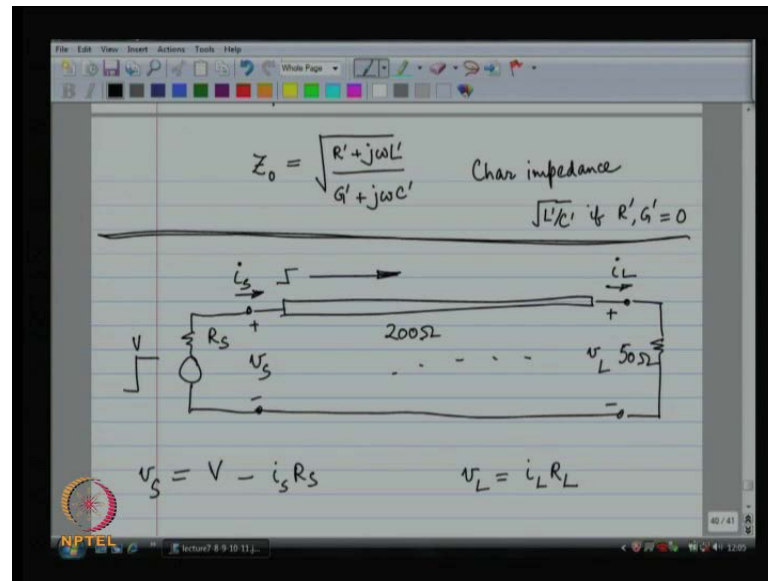 File Edit View Insert Actions Tools Help
Whole Page
B I
Z₀ = √((R' + jωL') / (G' + jωC'))
Char impedance
√(L'/C') if R', G' = 0
i_S
i_L
+
200Ω
+
V
R_S
v_S
v_L 50Ω
-
-
v_S = V - i_S R_S
v_L = i_L R_L
40 / 41
NPTEL
lecture7-8-9-10-11.j...
12:05